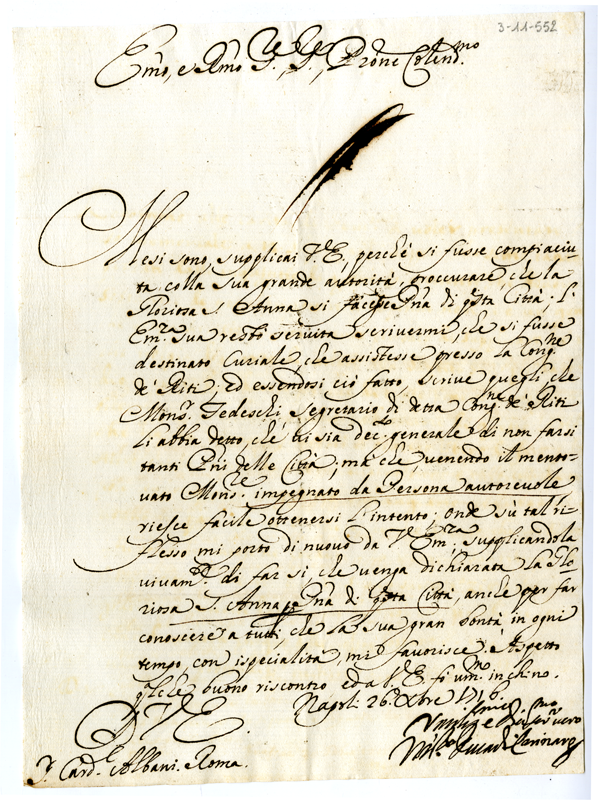 3-11-552
Em̃o, e Rm̃o Sre. Sre. Prõne Colend.mo
Mesi sono, supplicai V.E., perchè si fusse compiaciu-
ta colla sua grande autorità, proccurare chè la
Gloriosa S. Anna si facesse Pñа di q̃sta Città; l'
Em.ra sua restò servita scrivermi, che si fusse
destinato Curiale, che assistesse presso la Cong.ne
de' Riti: Ed essendosi ciò fatto, scrive quegli che
Mons.r Tedeschi, segretario di detta Cong.ne de' Riti
li abbia detto, che vi sia dec.to generale di non farsi
tanti Pñi delle Città; ma che, venendo il mento-
vato Mons.re impegnato da Persona autorevole
riesce facile ottenersi l'intento; onde sù tal ri-
flesso mi porto di nuovo da V.Em.ra, supplicandola
vivam.te di far sì, che venga dichiarata la Glo
riosa S. Anna pe Pñа di q̃sta Città, anche per far
conoscere a tutti, che la sua gran bontà in ogni
tempo, con ispecialità, mi favorisce: Aspetto
q̃lche buono riscontro ed a V.E. fò um.o inchino.
Napoli 26. Xbre 1716.
D V E.
S.r Card.l Albani. Roma.